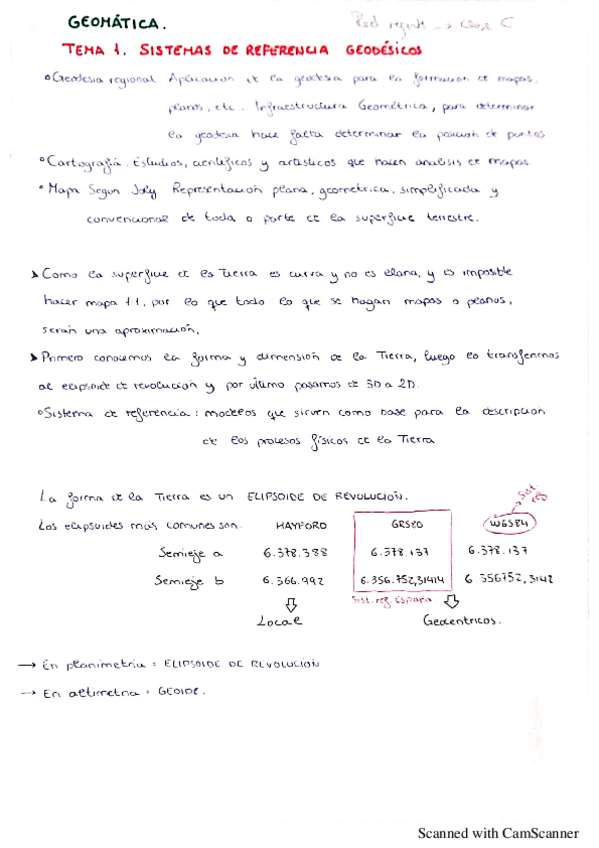 GEOMÁTICA. Red regente → Clase C
TEMA 1. SISTEMAS DE REFERENCIA GEODÉSICOS
Geodesia regional Aplicacion de la geodesia para la formacion de mapas,
planos, etc. Infraestructura Geométrica, para determinar
la geodesia hace falta determinar la posicion de puntos
Cartografía. Estudios, científicos y artisticos que hacen analisis de mapas.
Mapa Segun Joly Representación plana, geometrica, simplificada y
convencional de toda o parte de la superficie terrestre.
Como la superficie de la Tierra es curva y no es plana, y es imposible
hacer mapa 1:1, por lo que todo lo que se hagan mapas o planos,
serán una aproximación.
Primero conocemos la forma y dimension de la Tierra, luego lo transferimos
al elipsoide de revolucion y por último pasamos de 3D a 2D.
Sistema de referencia: modelos que sirven como base para la descripcion
de los procesos físicos de la Tierra
La forma de la Tierra es un ELIPSOIDE DE REVOLUCIÓN.
Sist ref
Los elipsoides más comunes son. HAYFORD GRS80 WGS84
Semieje a 6.378.388 6.378.137 6.378.137
Semieje b 6.366.992 6.356.752,31414 6.356752,3142
Sist. ref España
Local Geocentricos.
→ En planimetria: ELIPSOIDE DE REVOLUCIÓN
→ En altimetria: GEOIDE.
Scanned with CamScanner